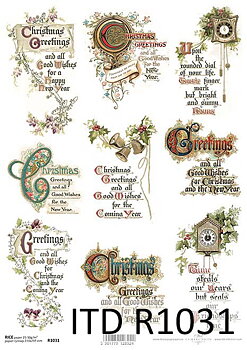 Christmas
Greetings
and all
Good Wishes
for a
Happy
New Year
Christmas
Greetings
and all
Good Wishes
for the
New Year.
Upon
the
rounded dial
of your life,
finger
mark
but bright
and sunny
Hours
Christmas
Greetings
and all
Good Wishes
for
the New Year.
Christmas
Greetings
and all
Good Wishes
for the
Coming Year
Greetings
and all
Good Wishes
for Christmas
and the New Year
Greetings
and all
Good Wishes
for
Christmas
and the
Coming Year
Christmas
Greetings
and all
Good Wishes
for the
Coming Year.
Time
steals
our Years
but
RICE
R1031
ITD R1031